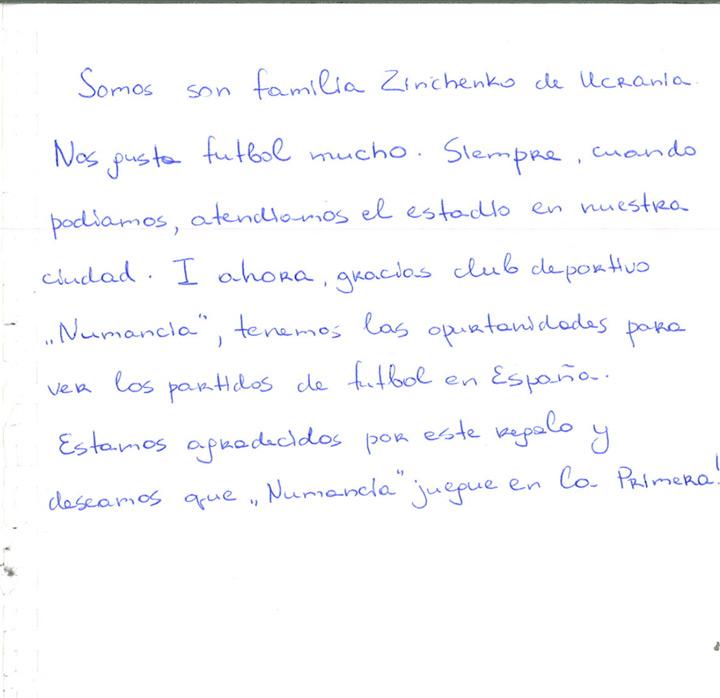 Somos son familia Zinchenko de Ucrania.
Nos gusta futbol mucho. Siempre, cuando
podiamos, atendiamos el estadio en nuestra
ciudad. I ahora, gracias club deportivo
„Numancia“, tenemos las opurtanidades para
ver los partidos de futbol en España.
Estamos agradecidos por este regalo y
deseamos que „Numancia“ juegue en la Primera!